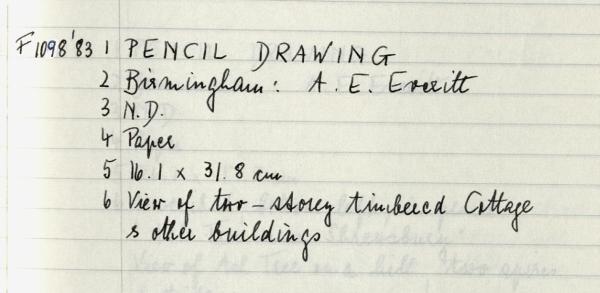 F1098'83 1 PENCIL DRAWING
2 Birmingham: A. E. Everitt
3 N.D.
4 Paper
5 16.1 x 31.8 cm
6 View of two-storey timbered Cottage
& other buildings